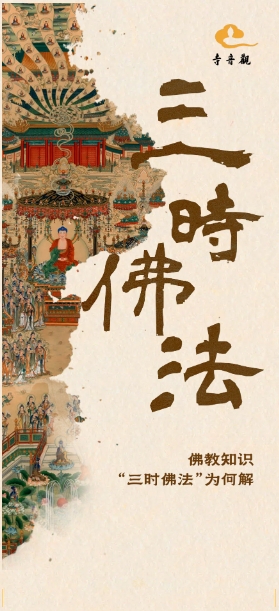 寺音觀
三時佛法
佛教知识
“三时佛法”为何解